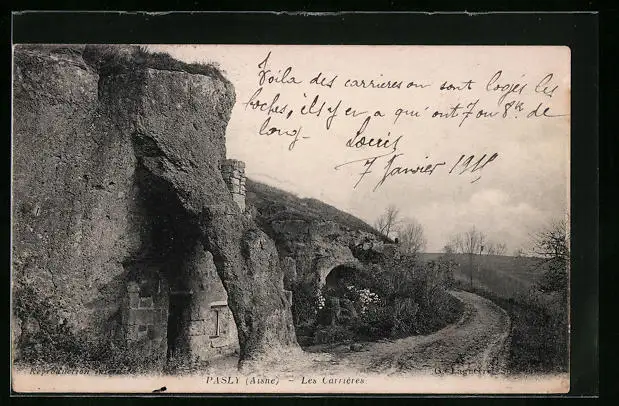 Voila des carrières ou sont logés les
boches, ils y en a qui ont 7 ou 8 k. de
long -
7 janvier 1915
Reproduction interdite
PASLY (Aisne) - Les Carrières